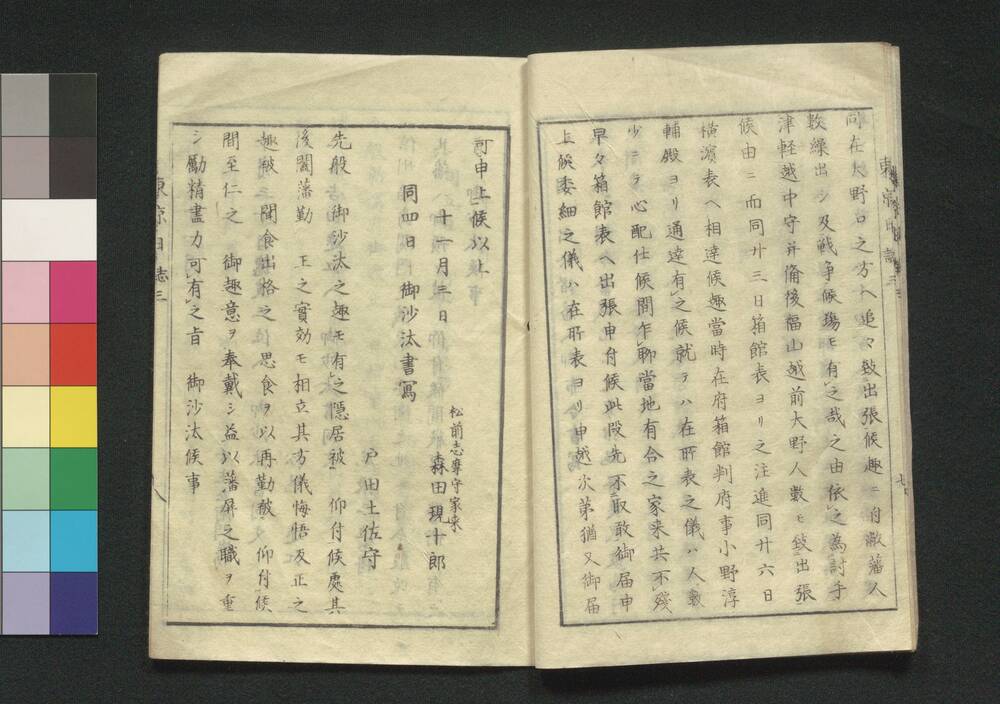 同在大野口之方ヘ追々致出張候趣ニ付敝藩人
数繰出シ及戦争候場モ有之哉之由依之為討手
津軽越中守并備後福山越前大野人數モ致出張
候由ニ而同廿三日箱館表ヨリ之注進同廿六日
横濱表ヘ相達候趣當時在府箱館判府事小野淳
輔殿ヨリ通達有之候就テハ在所表之儀ハ人數
少ニテ心配仕候間乍聊當地有合之家来共不殘
早々箱館表ヘ出張申付候此段先不取敢御届申
上候委細之儀ハ在所表ヨリ申越次第猶又御届
可申上候以上
十一月三日
松前志摩守家来
森田現十郎
同四日御沙汰書寫
戸田土佐守
先般 御沙汰之趣モ有之隠居被 仰付候處其
後闔藩勤 王之實効モ相立其方儀悔悟反正之
趣被 聞食出格之 思食ヲ以再勤被 仰付候
間至仁之 御趣意ヲ奉戴シ益以藩屏之職ヲ重
シ勵精盡力可有之旨 御沙汰候事
東京日誌三
八